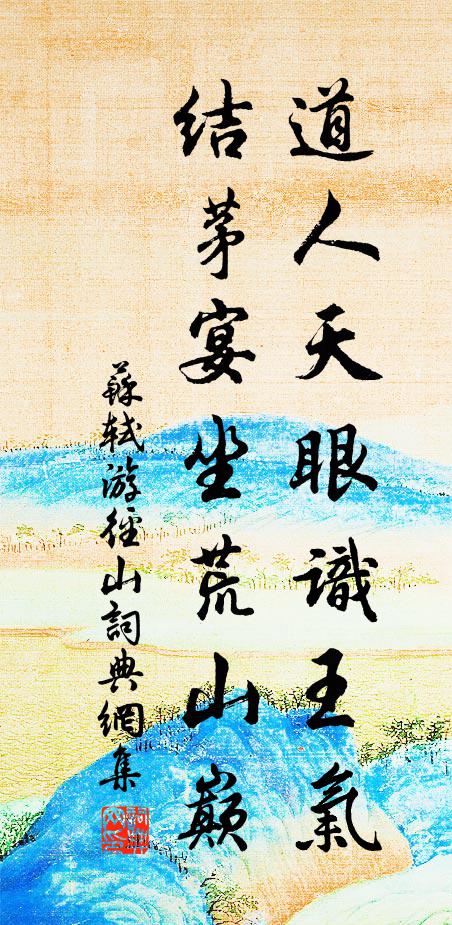 道人天眼識王氣
結茅宴坐荒山巔
蘇軾游徑山詞典網集